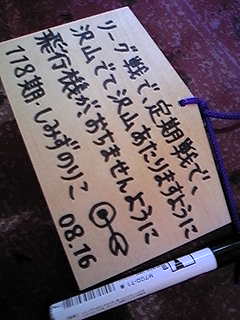 リーグ戦で、定期戦で、
沢山でて沢山あたりますように
飛行機が、おちませんように
118期・しみずのりこ 08.16
M700-T1